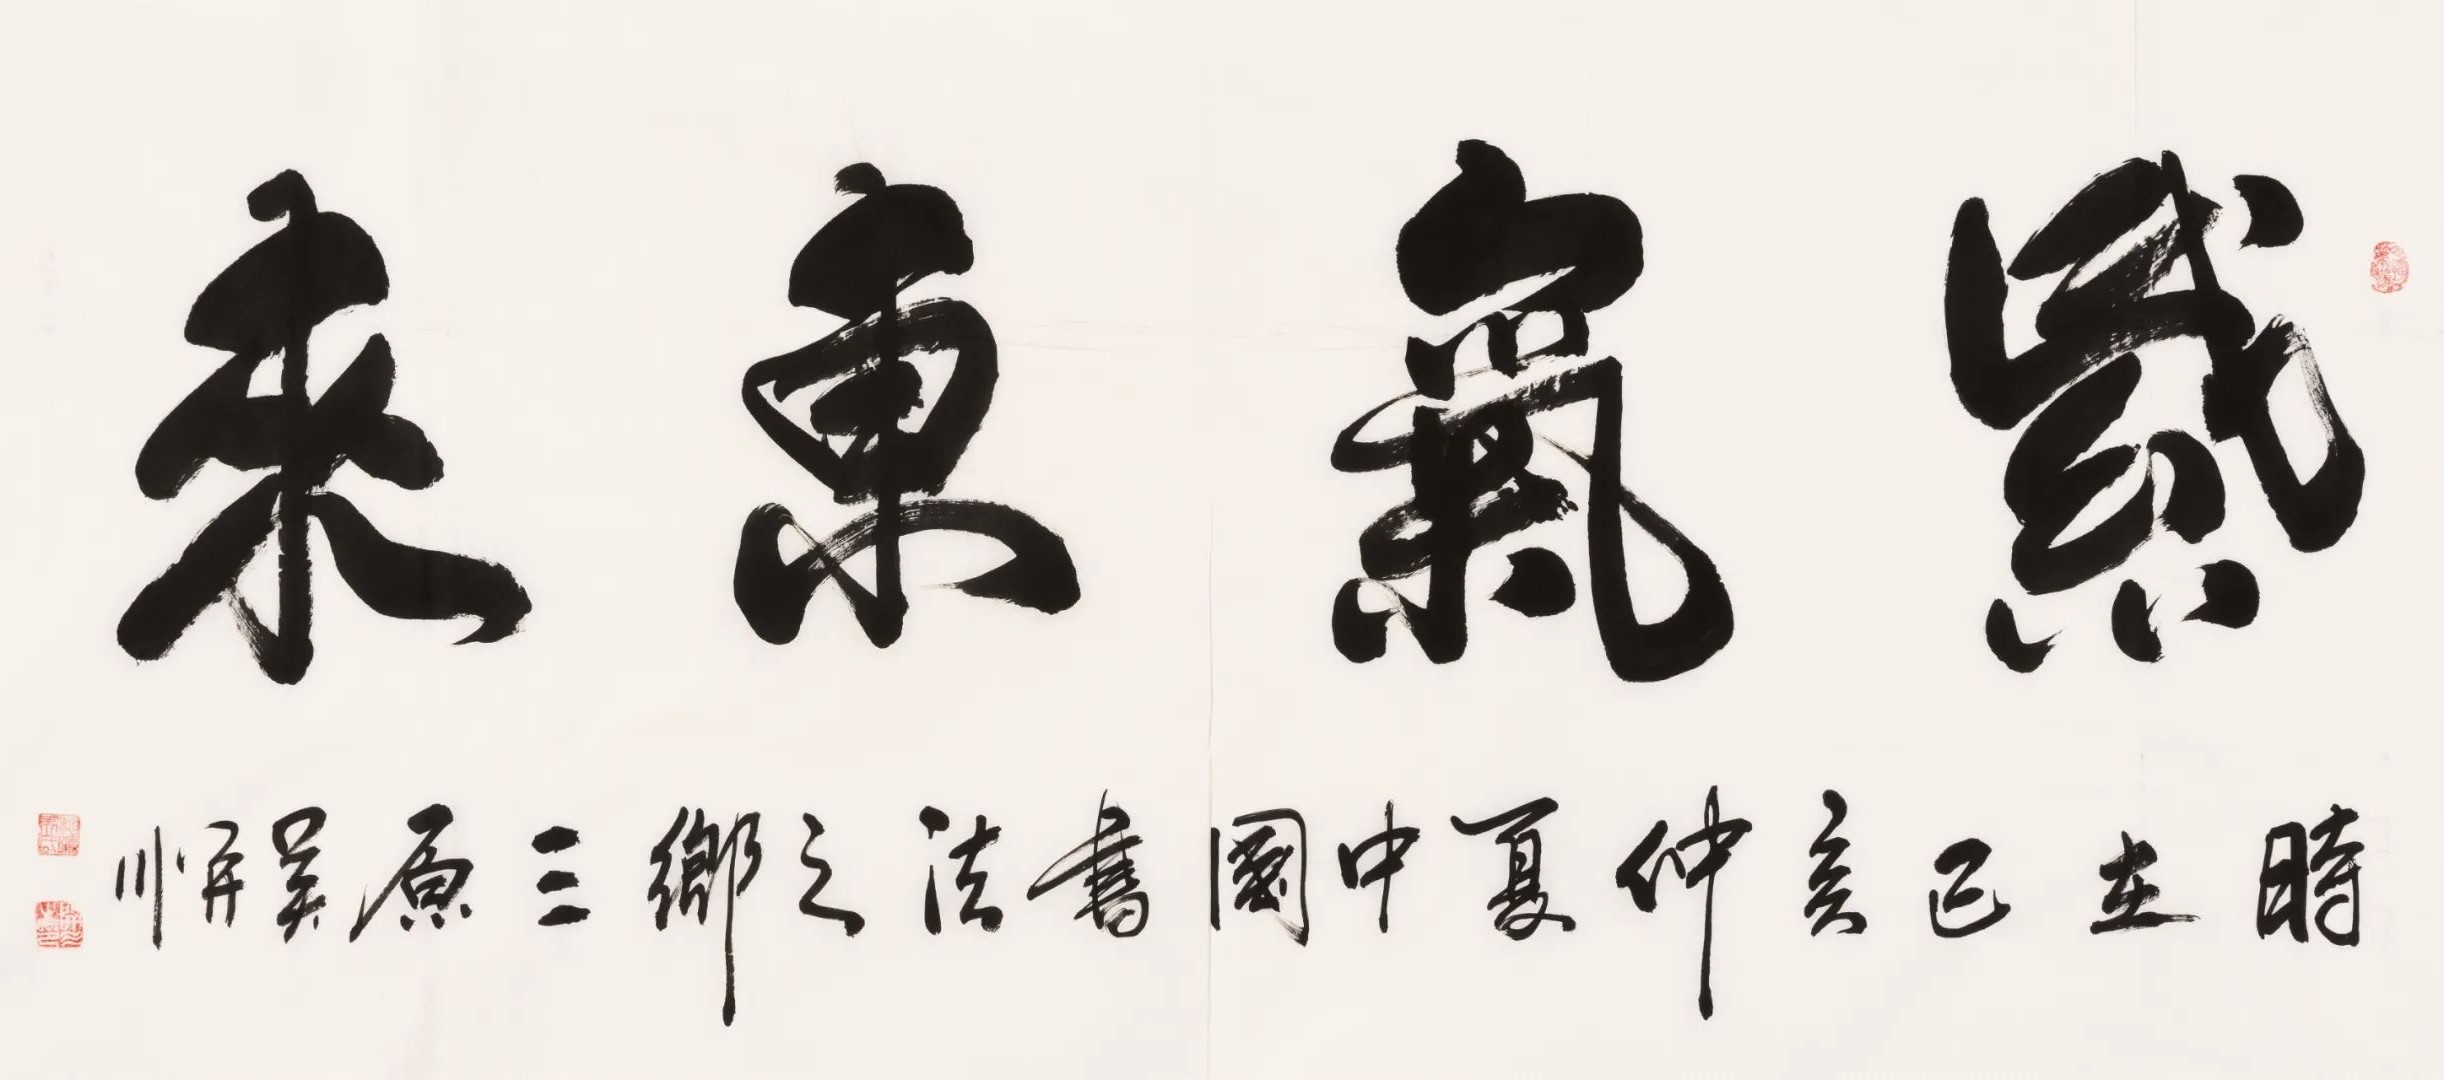 紫氣東來
時在己亥仲夏中國書法之鄉三原吴屏川